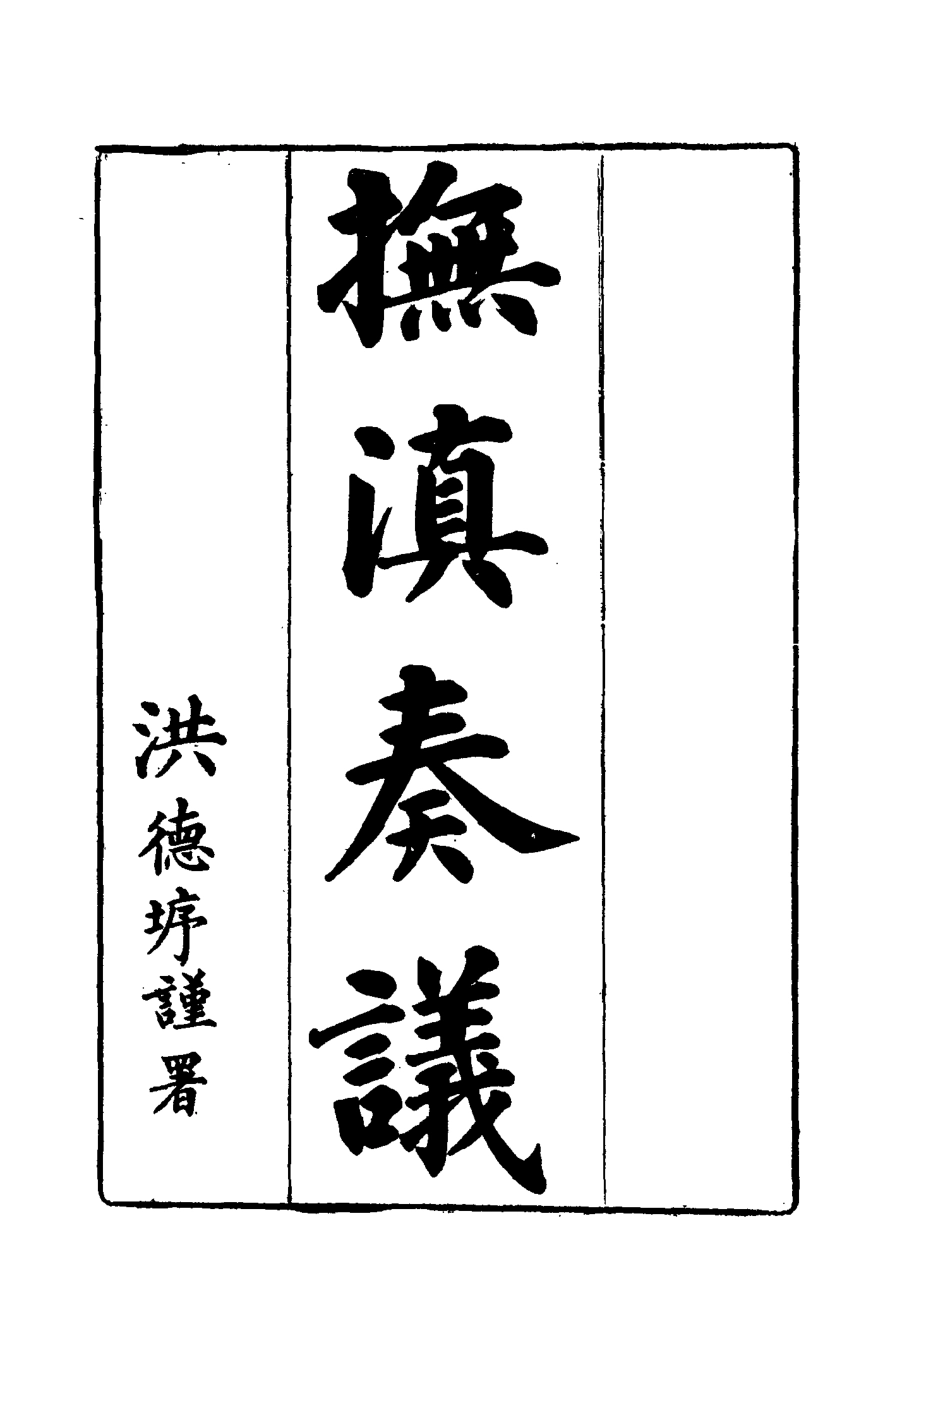 撫滇奏議
洪德垿謹署